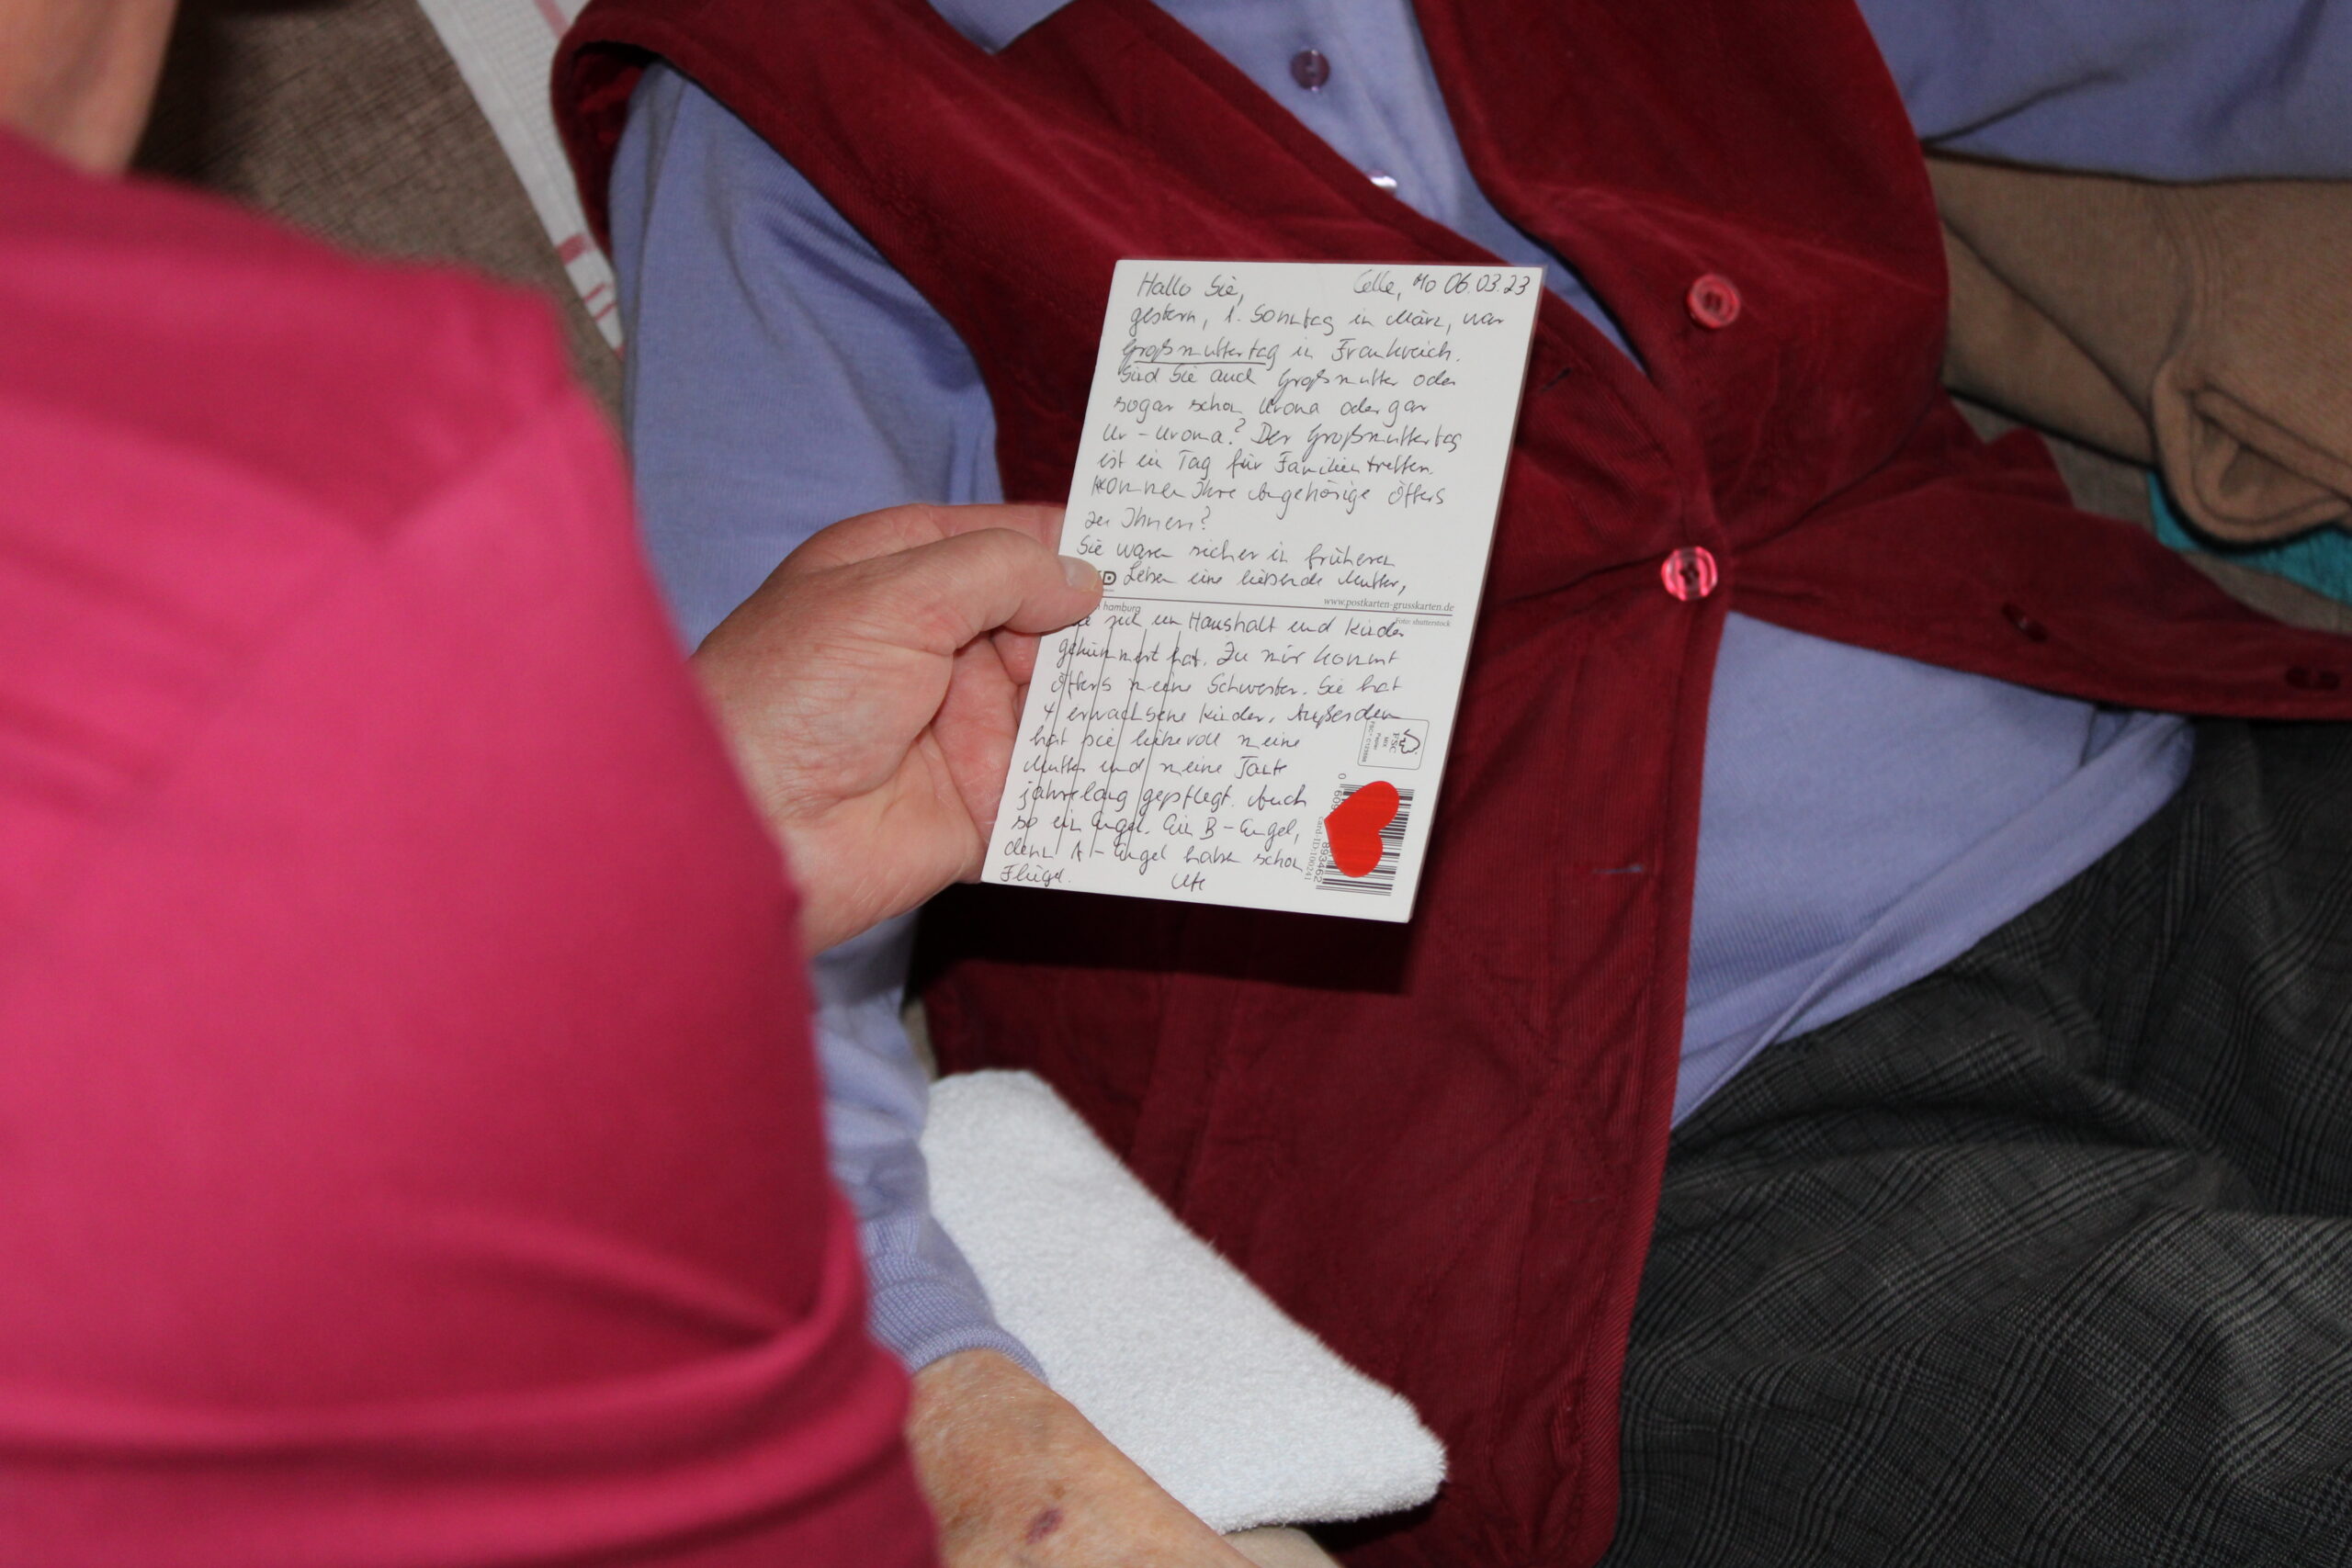 Hallo Sie, Celle, Mo 06.03.23
gestern, 1. Sonntag im März, war
Großmuttertag in Frankreich.
Sind Sie auch Großmutter oder
sogar schon Uroma oder gar
Ur-Uroma? Der Großmuttertag
ist ein Tag für Familientreffen.
Kommen Ihre Angehörige öfters
zu Ihnen?
Sie waren sicher in früheren
Leben eine liebende Mutter,
www.postkarten-grusskarten.de
hamburg
Foto: shutterstock
die sich um Haushalt und Kinder
gekümmert hat. Zu mir kommt
öfters meine Schwester. Sie hat
4 erwachsene Kinder. Außerdem
hat sie liebevoll meine
Mutter und meine Tante
jahrelang gepflegt. Auch
so ein Engel. Ein B-Engel,
denn A-Engel haben schon
Flügel. Ute
FSC
MIX
893462